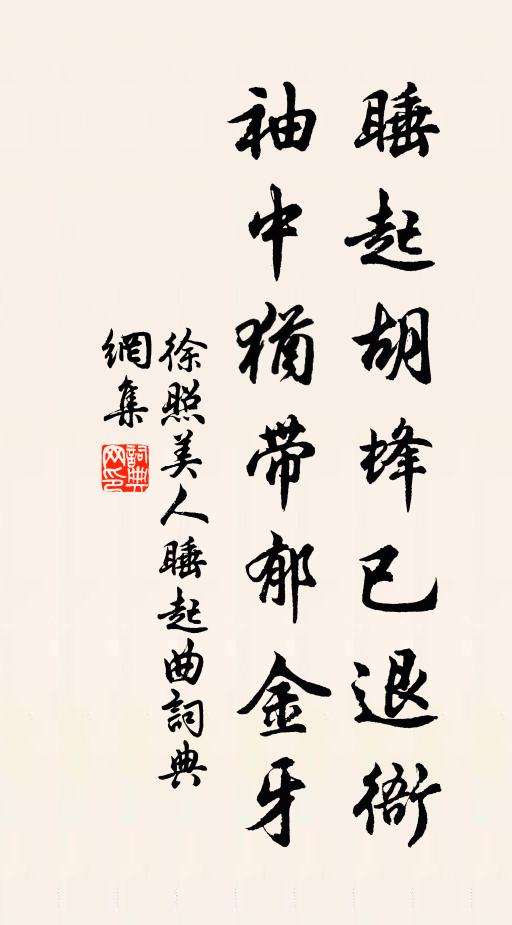 睡起胡蜂已退衙
袖中猶帶郁金牙
徐照美人睡起曲詞典
網集
詞典網印